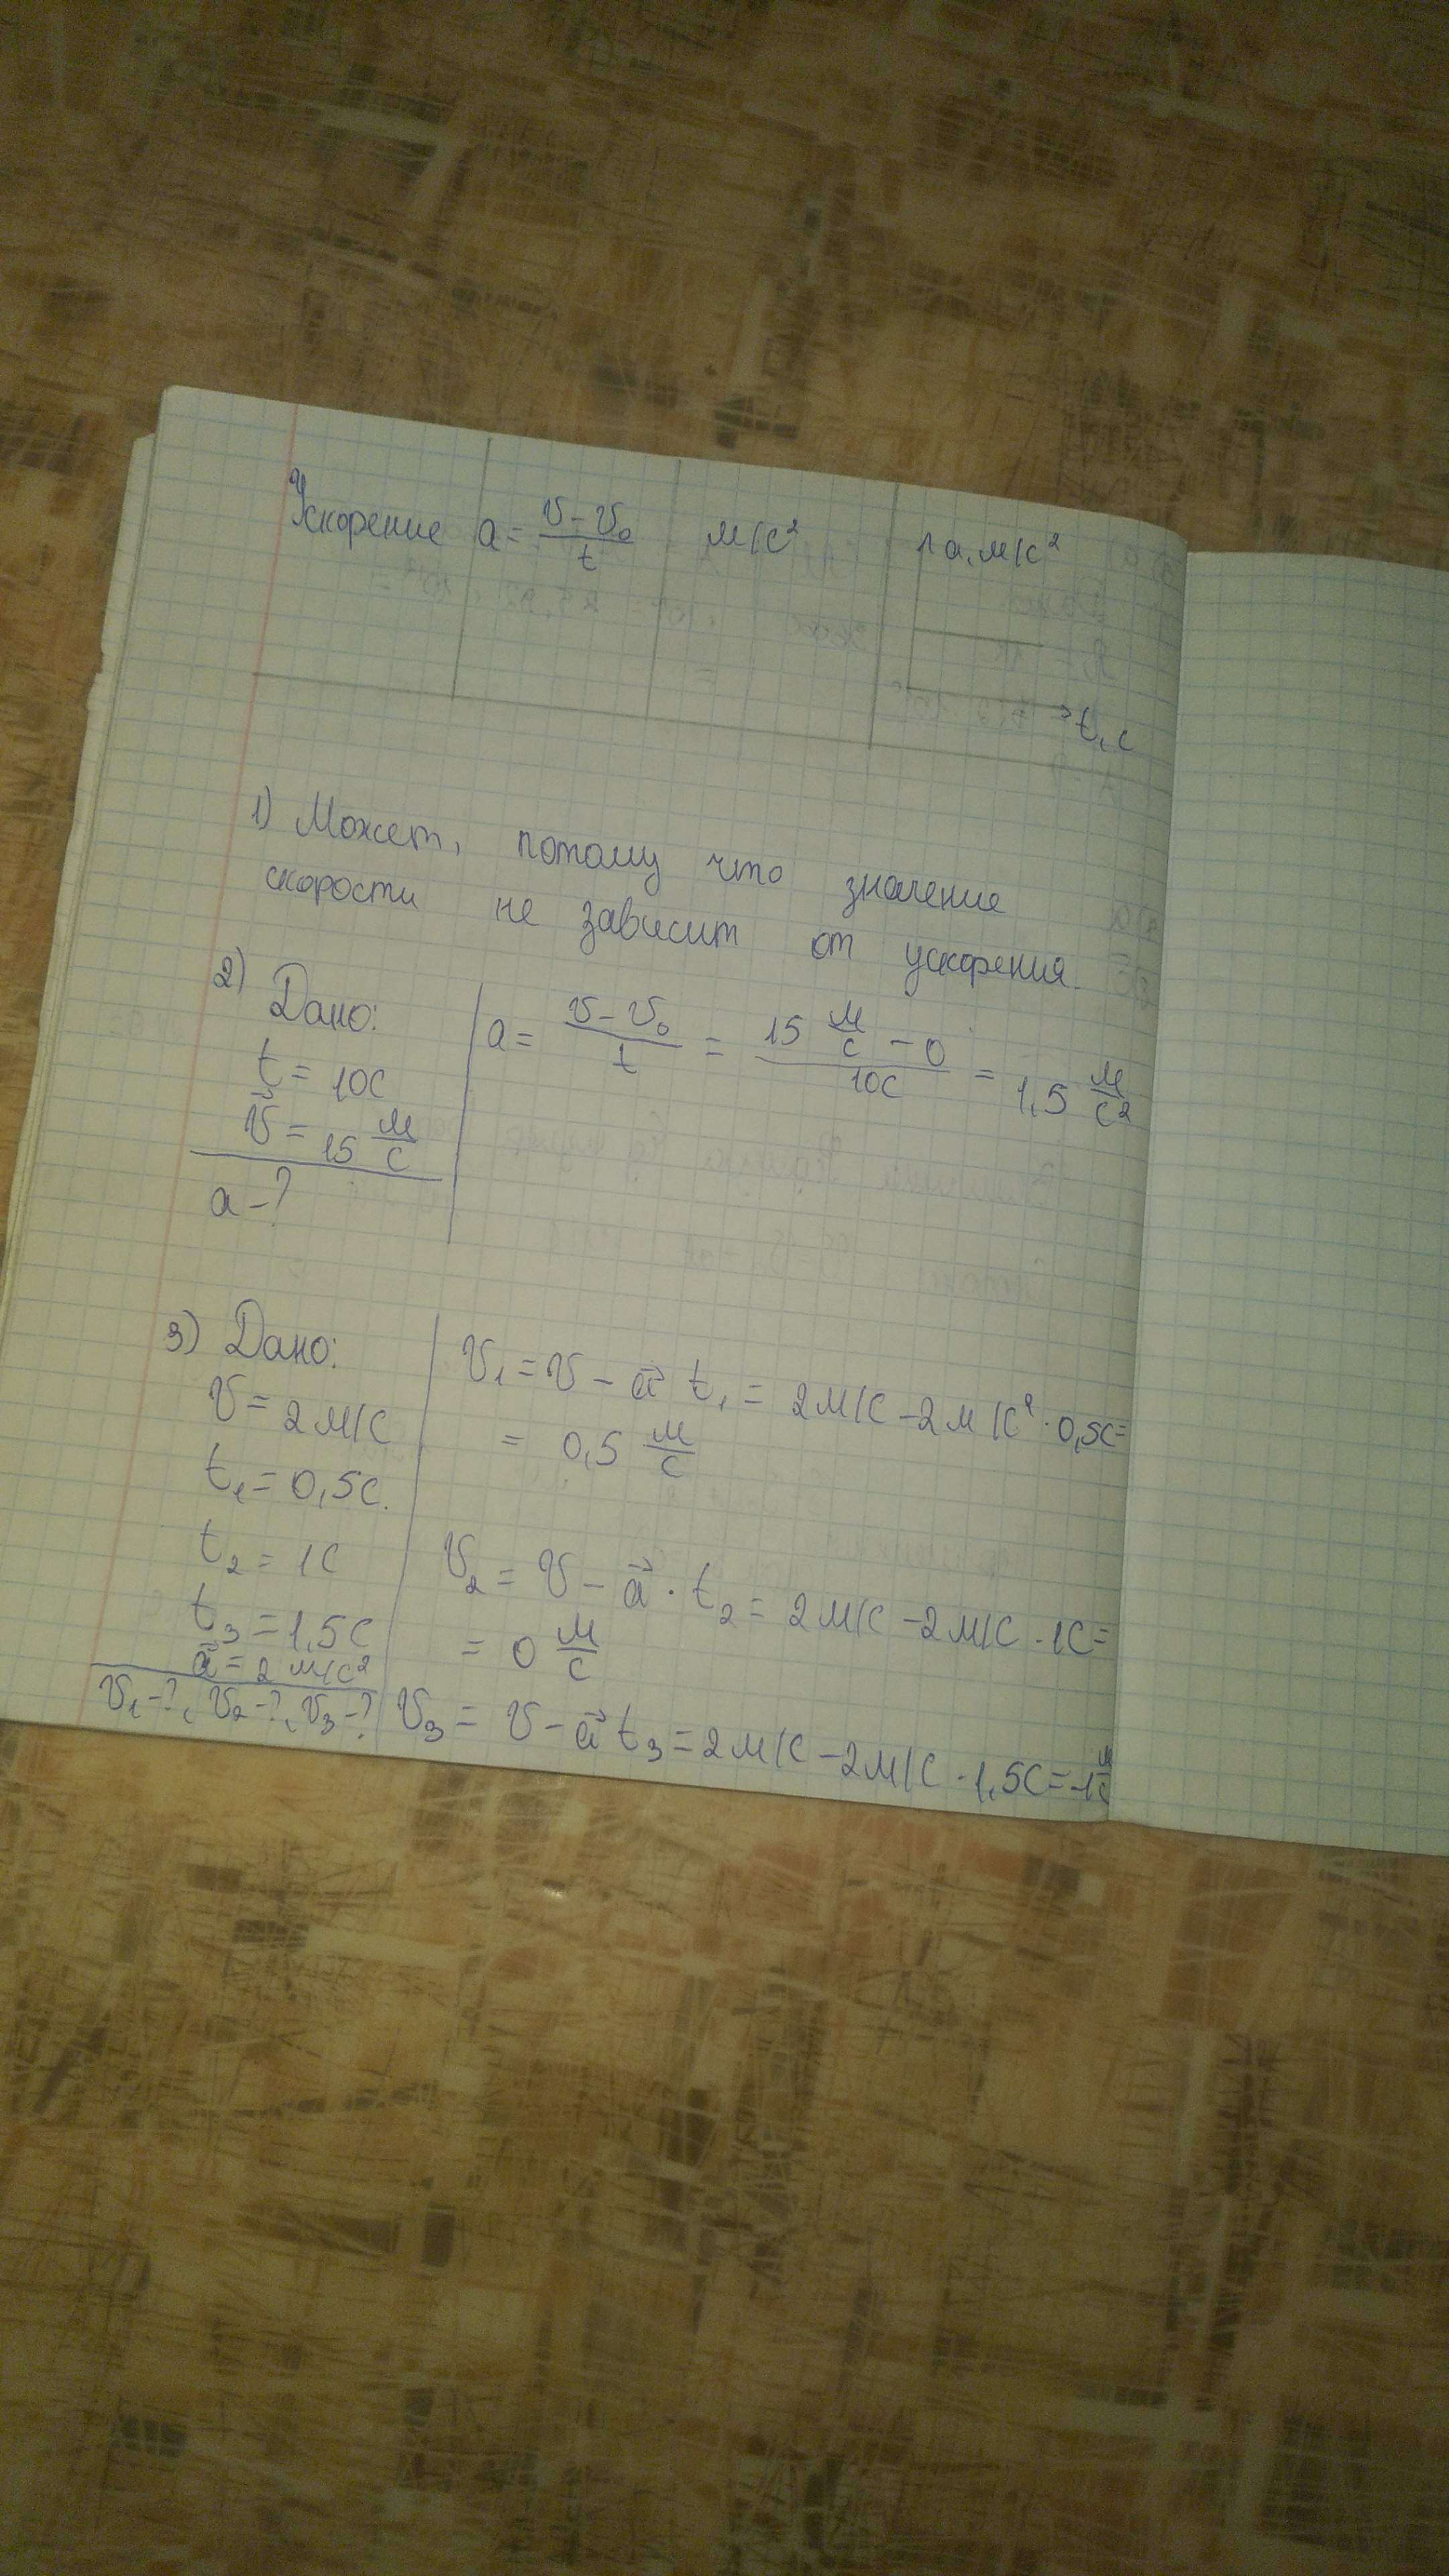 Ускорение a = (v - v₀)/t м/с² a, м/с²
t, с
1) Может, потому что значение
скорости не зависит от ускорения.
2) Дано:
t = 10с
v⃗ = 15 м/с
a - ?
a = (v - v₀)/t = (15 м/с - 0)/10с = 1,5 м/с²
3) Дано:
v = 2м/с
t₁ = 0,5с.
t₂ = 1с
t₃ = 1,5с
a⃗ = 2 м/с²
v₁ - ?, v₂ - ?, v₃ - ?
v₁ = v - a⃗ t₁ = 2м/с - 2м/с² · 0,5с =
= 0,5 м/с
v₂ = v - a⃗ · t₂ = 2м/с - 2м/с · 1с =
= 0 м/с
v₃ = v - a⃗ t₃ = 2м/с - 2м/с · 1,5с = -1 м/с